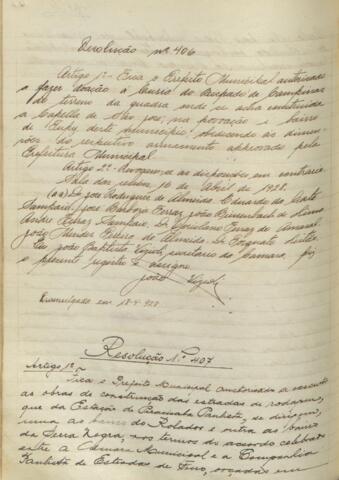 Resolução nº 406
Artigo 1º Fica o Prefeito Municipal autorisado
a fazer doação á Curia do Bispado de Campinas
do terreno da quadra onde se acha construida
a Capella de São José, na povoação e bairro
de Tupy, deste municipio, obedecendo as dimen-
sões do respectivo arruamento approvado pela
Prefeitura Municipal.
Artigo 2º Revogam-se as disposições em contrario.
Sala das sessões, 10 de Abril de 1928.
(aa) Dr. José Rodrigues de Almeida, Eduardo da Costa
Sampaio, José Barbosa Ferraz, João de Lima
André Ferraz Sampaio, Dr. Coriolano Ferraz do Amaral
João Mendes Pereira de Almeida, Dr. Torquato Leitão
Eu João Baptista Vizioli, secretario da Camara, fiz
o presente registro e assigno.
João Vizioli
Promulgada em 18-4-928
Resolução N.º 407
Artigo 1º
Fica o Prefeito Municipal autorisado a executar
as obras de construcção das estradas de rodagem,
que da Estação de Paulista, se dirigem,
uma ao bairro do Rolador e outra ao bairro
da Serra Negra, nos termos do accordo celebrado
entre a Câmara Municipal e a Companhia
Paulista de Estradas de Ferro, orçadas em